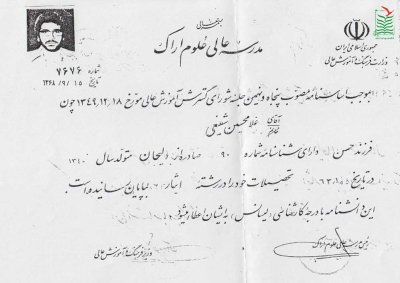 بسمه تعالی
جمهوری اسلامی ایران
وزارت فرهنگ و آموزش عالی
مدرسه عالی علوم اراک
شماره ۷۶۷۶
تاریخ ۱۳۶۸/۹/۱۵
بموجب اساسنامه مصوب پنجاه و نهمین جلسه شورای گسترش آموزش عالی مورخ ۱۳۴۹،۱۲،۱۸ چون
آقای غلامحسین شفیعی
فرزند حسن دارای شناسنامه شماره ۹۰ صادره از دلیجان متولد سال ۱۳۴۰
در تاریخ تحصیلات خود را در رشته بپایان رسانیده است.
این دانشنامه با درجه کارشناسی (لیسانس) به ایشان اعطا میشود
رئیس مدرسه عالی علوم اراک
وزیر فرهنگ و آموزش عالی